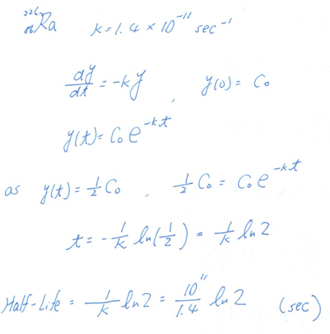 ²²⁶₈₈Ra k=1.4 × 10⁻¹¹ sec⁻¹
dy/dt = -ky , y(0) = C₀
y(t) = C₀e⁻ᵏᵗ
as y(t) = 1/2 C₀ , 1/2 C₀ = C₀e⁻ᵏᵗ
t = - 1/k ln(1/2) = 1/k ln 2
Half-Life = 1/k ln 2 = 10¹¹/1.4 ln 2 (sec)